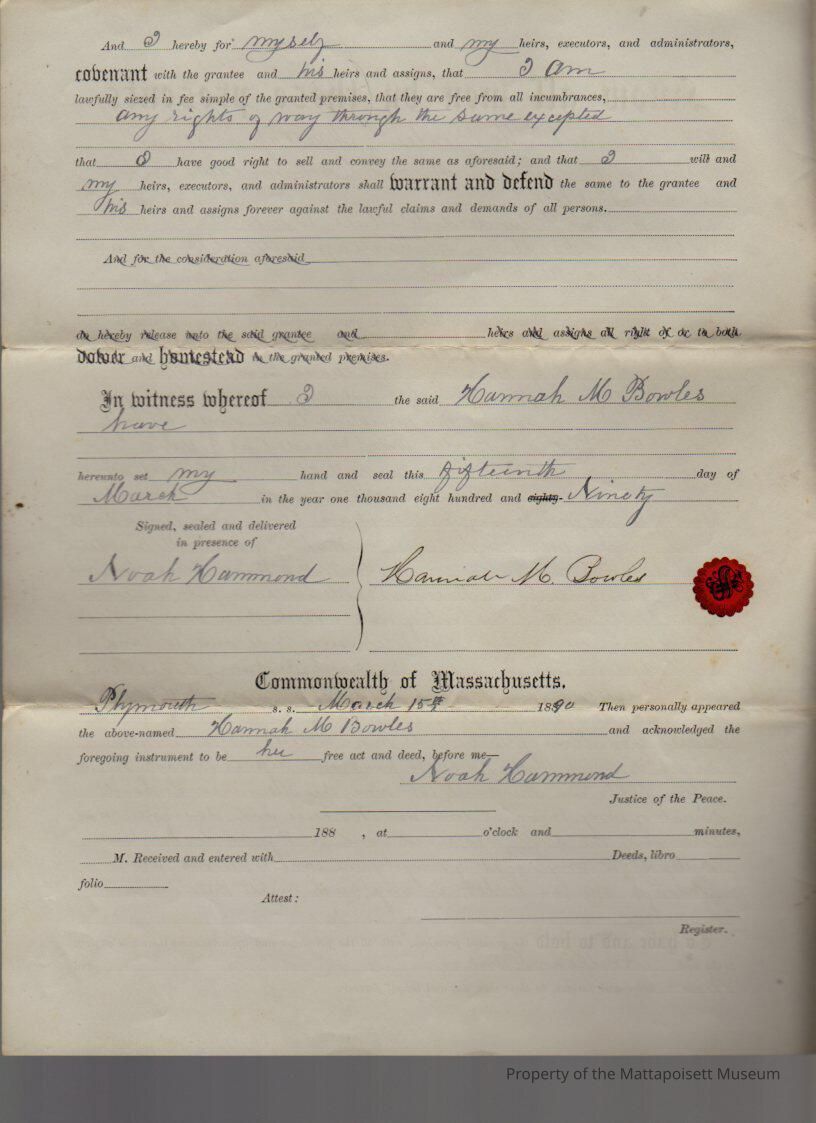 And I hereby for myself and my heirs, executors, and administrators,
covenant with the grantee and his heirs and assigns, that I am
lawfully siezed in fee simple of the granted premises, that they are free from all incumbrances,
any rights of way through the same excepted
that I have good right to sell and convey the same as aforesaid; and that I will and
my heirs, executors, and administrators shall warrant and defend the same to the grantee and
his heirs and assigns forever against the lawful claims and demands of all persons.
And for the consideration aforesaid
do hereby release unto the said grantee and heirs and assigns all right of or to both
dower and homestead in the granted premises.
In witness whereof I the said Hannah M Bowles
have
hereunto set my hand and seal this fifteenth day of
March in the year one thousand eight hundred and eighty- Ninety
Signed, sealed and delivered
in presence of
Noah Hammond Hannah M. Bowles
Commonwealth of Massachusetts.
Plymouth s. s. March 15th 1890 Then personally appeared
the above-named Hannah M Bowles and acknowledged the
foregoing instrument to be her free act and deed, before me—
Noah Hammond
Justice of the Peace.
188 , at o'clock and minutes,
M. Received and entered with Deeds, libro
folio
Attest:
Register.
Property of the Mattapoisett Museum